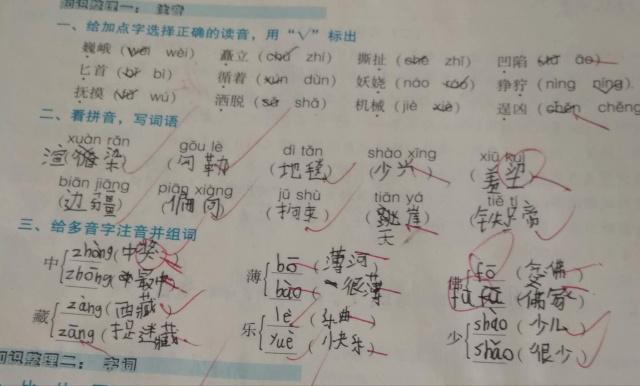 知识整理一：
一、给加点字选择正确的读音，用“√”标出
巍峨（wēi wèi） 矗立（chù zhí） 撕扯（chě zhǐ） 凹陷（āo）
匕首（bǐ bì） 循着（xún dùn） 妖娆（náo ráo） 狰狞（nìng níng）
抚摸（fǔ wǔ） 洒脱（sǎ shǎ） 机械（jiè xiè） 逞凶（chěn chěng）
二、看拼音，写词语
xuàn rǎn gōu lè dì tǎn shào xīng xiū kuì
渲染（勾勒）（地毯）（少兴）（羞
biān jiāng piān xiàng jū shù tiān yá tiě tí
（边疆）（偏向）（拘束）（跳崖）（铁蹄）
天
三、给多音字注音并组词
中 zhòng（中奖） 薄 bō（薄河） 佛 fó（
zhōng 中 bào 很薄 fú
藏 zàng（西藏） 乐 lè（乐曲） 少 shào（少儿）
zāng（捉迷藏 yuè（快乐） shǎo（很少）
知识整理二：字词